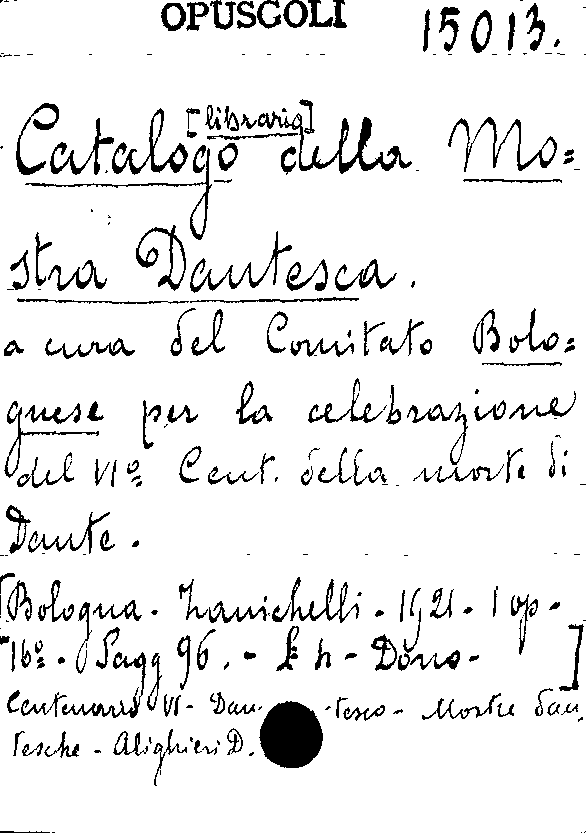 OPUSCOLI 15013.
[libraria]
Catalogo della Mo=
stra Dantesca.
a cura del Comitato Bolo=
gnese per la celebrazione
del VIº Cent. della morte di
Dante.
[Bologna - Zanichelli - 1921 - 1 op -
16º - Pagg 96. - L n - Dono - ]
Centenario VI - Dan tesco - Mostre Dan
tesche - Alighieri D.